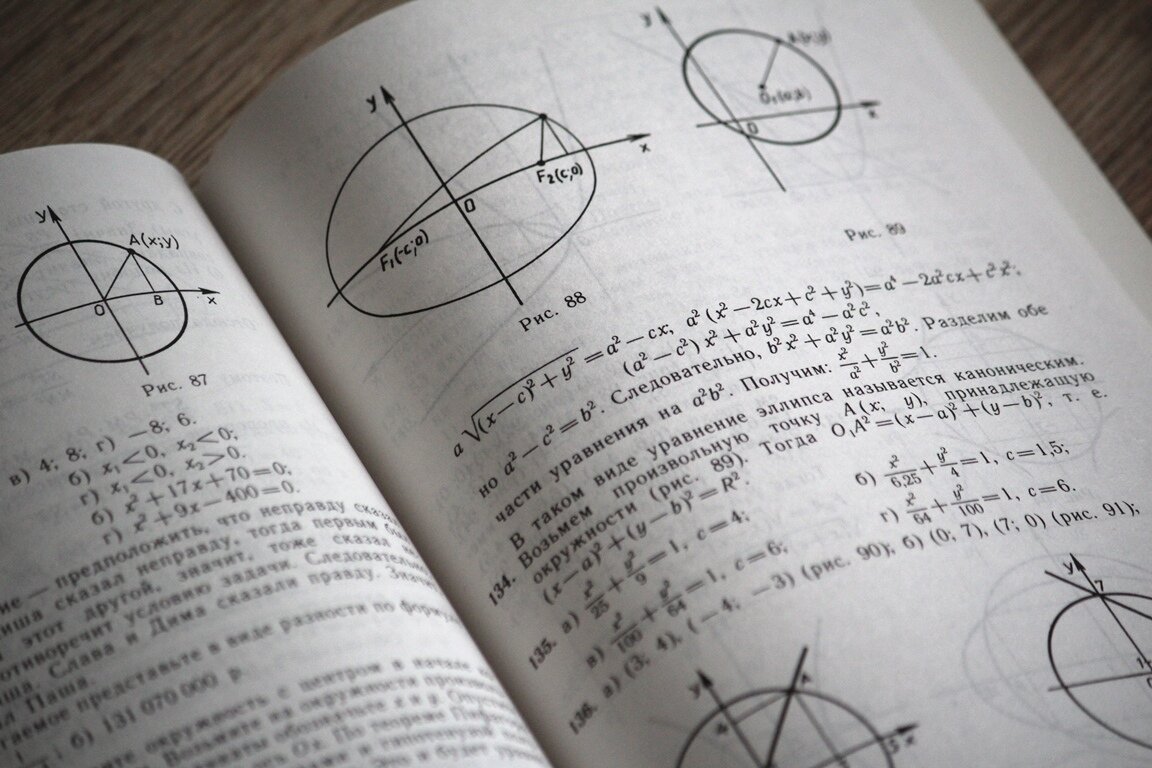 y
A(x;y)
O
B
x
Рис. 87
в) 4; 8; г) −8; 6.
б) x₁<0, x₂<0;
г) x₁<0, x₂>0.
б) x²+17x+70=0;
г) x²+9x−400=0.
предположить, что неправду
сказал неправду, тогда первым
этот другой, значит, тоже сказал
условию задачи. Следовательно
Слава и Дима сказали правду.
Паша.
представьте в виде разности по
б) 131 070 000 р.
окружность с центром в начале
y
O
x
F₁(−c;0)
F₂(c;0)
Рис. 88
y
A(x;y)
O₁(a;b)
O
x
Рис. 89
a√(x−c)²+y²=a²−cx, a²(x²−2cx+c²+y²)=a⁴−2a²cx+c²x²;
(a²−c²)x²+a²y²=a⁴−a²c²,
но a²−c²=b². Следовательно, b²x²+a²y²=a²b². Разделим обе
части уравнения на a²b². Получим: x²/a²+y²/b²=1.
В таком виде уравнение эллипса называется каноническим.
134. Возьмем произвольную точку A(x; y), принадлежащую
окружности (рис. 89). Тогда O₁A²=(x−a)²+(y−b)², т. е.
(x−a)²+(y−b)²=R².
135. а) x²/25+y²/9=1, c=4; б) x²/6,25+y²/4=1, c=1,5;
в) x²/100+y²/64=1, c=6; г) x²/64+y²/100=1, c=6.
136. а) (3; 4), (−4; −3) (рис. 90); б) (0; 7), (7; 0) (рис. 91);
y
A
4
5
x
y
7
1